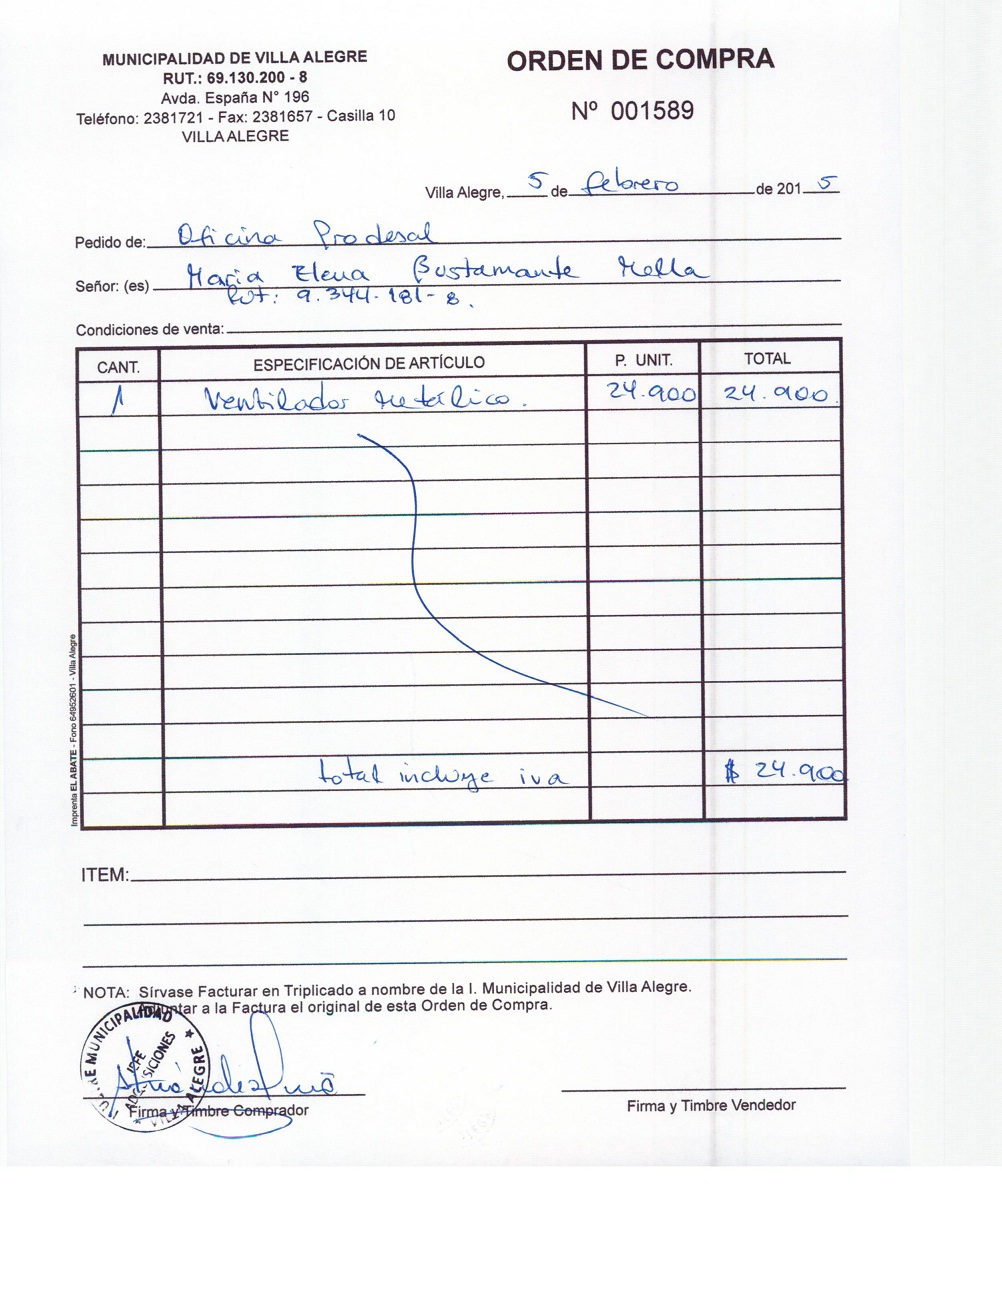 MUNICIPALIDAD DE VILLA ALEGRE
RUT.: 69.130.200 - 8
Avda. España N° 196
Teléfono: 2381721 - Fax: 2381657 - Casilla 10
VILLA ALEGRE
ORDEN DE COMPRA
Nº 001589
Villa Alegre, 5 de febrero de 2015
Pedido de: Oficina Prodesal
Señor: (es) Maria Elena Bustamante Mella
Rut: 9.344.181-8.
Condiciones de venta:
CANT. ESPECIFICACIÓN DE ARTÍCULO P. UNIT. TOTAL
1 Ventilador Metálico. 24.900 24.900.
total incluye iva $ 24.900
Imprenta EL ABATE - Fono 64952601 - Villa Alegre
ITEM:
NOTA: Sírvase Facturar en Triplicado a nombre de la I. Municipalidad de Villa Alegre.
Adjuntar a la Factura el original de esta Orden de Compra.
MUNICIPALIDAD
JEFE
ADQUISICIONES
VILLA ALEGRE
Firma y Timbre Comprador
Firma y Timbre Vendedor